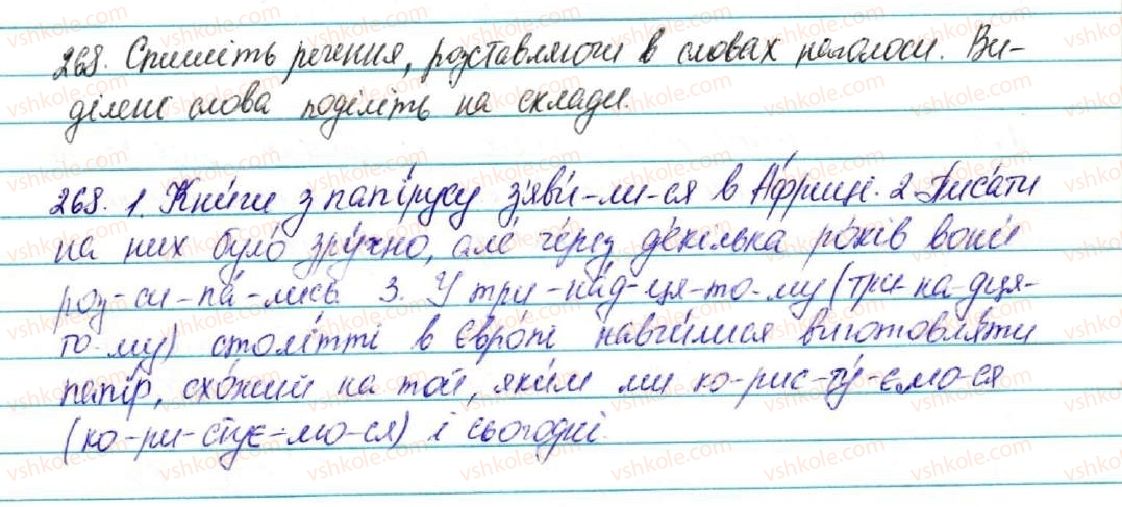 268. Спишіть речення, розставляючи в словах наголоси. Ви-
ділені слова поділіть на склади.
268. 1. Кни́ги з папі́русу з'яви́-ли-ся в А́фриці. 2. Писа́ти
на них було́ зру́чно, але́ че́рез де́кілька ро́ків вони́
роз-си-па́-лись. 3. У три-на́д-ця-то-му (три-на-дця-
то-му) столі́тті в Євро́пі навчи́лися виготовля́ти
папі́р, схо́жий на той, яки́м ми ко-рис-ту́-ємо-ся
(ко-ри-стує-мо-ся) і сьогодні.